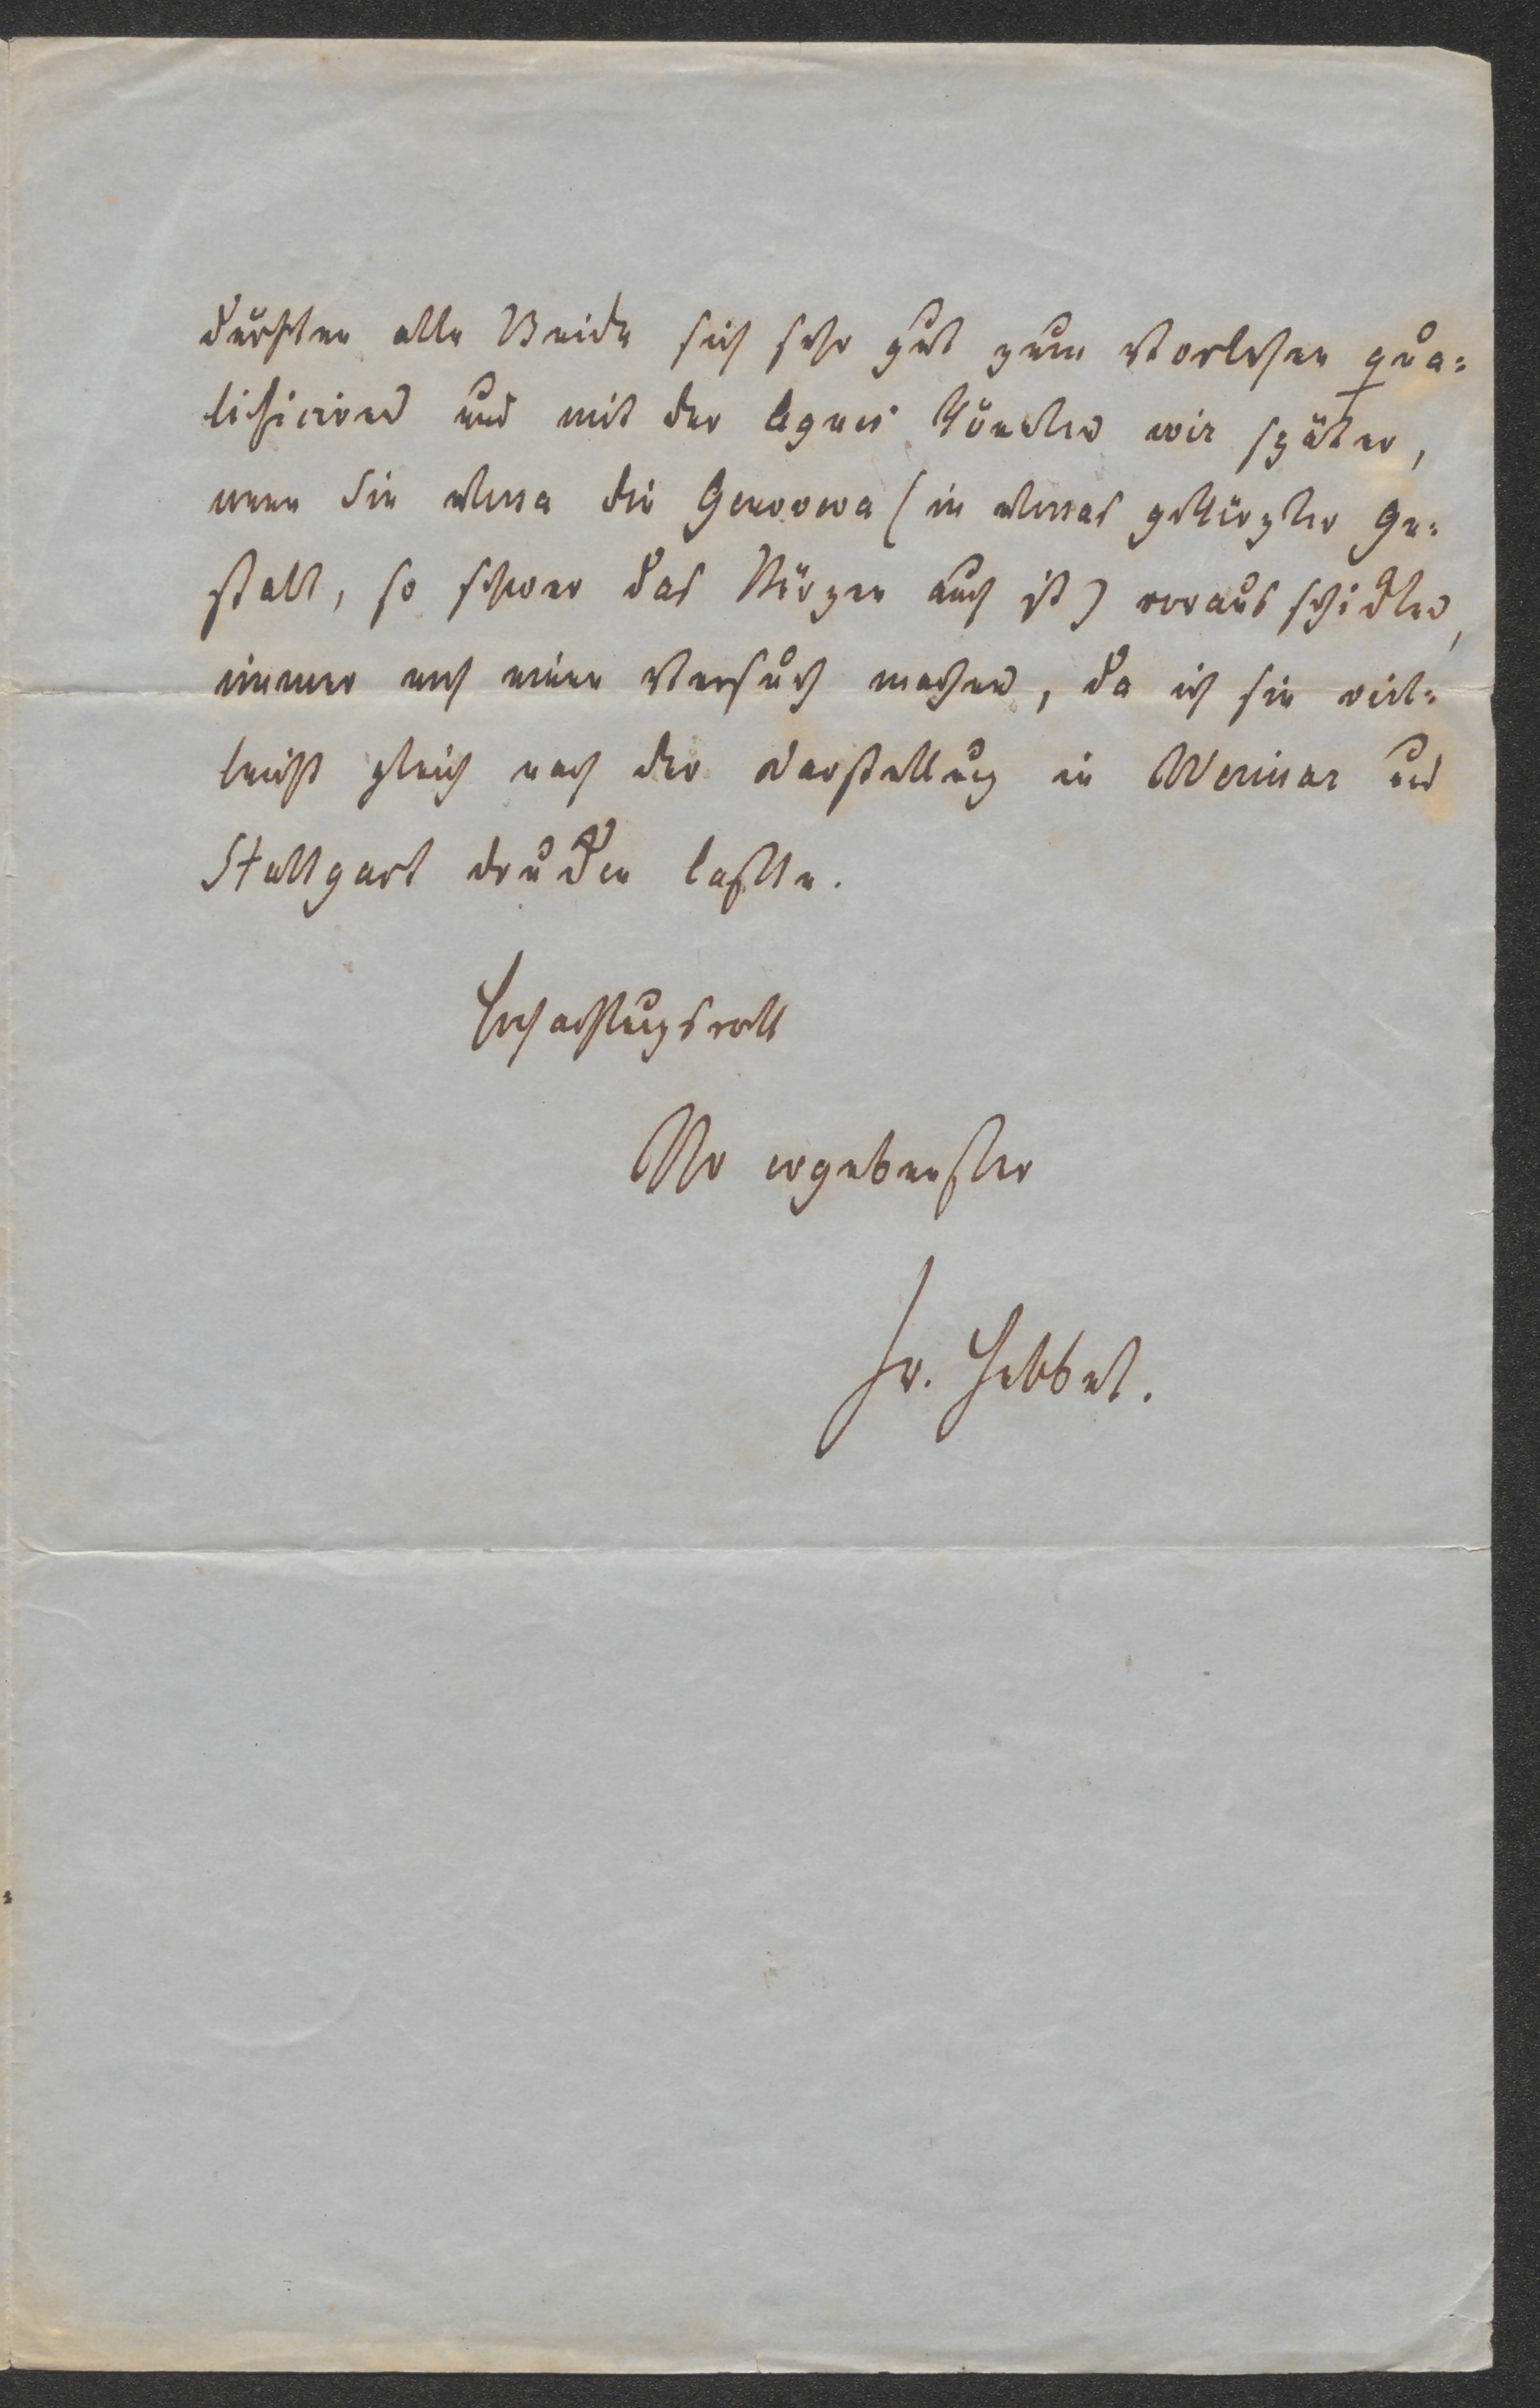 dürften alle Beide sich sehr gut zum Vorlesen qua=
lificiren und mit der Agnes könnten wir später,
wenn Sie etwa die Genoveva (in etwas gekürzter Ge=
stalt, so schwer das Kürzen auch ist) voraus schickten,
immer noch einen Versuch machen, da ich sie viel=
leicht gleich nach der Darstellung in Weimar und
Stuttgart drucken lasse.
Hochachtungsvoll
Ihr ergebenster
Fr. Hebbel.